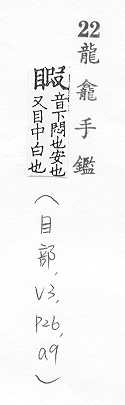 22 龍龕手鑑
睱音下閑也安也
又目中白也
(目部, V3, P26, a9)